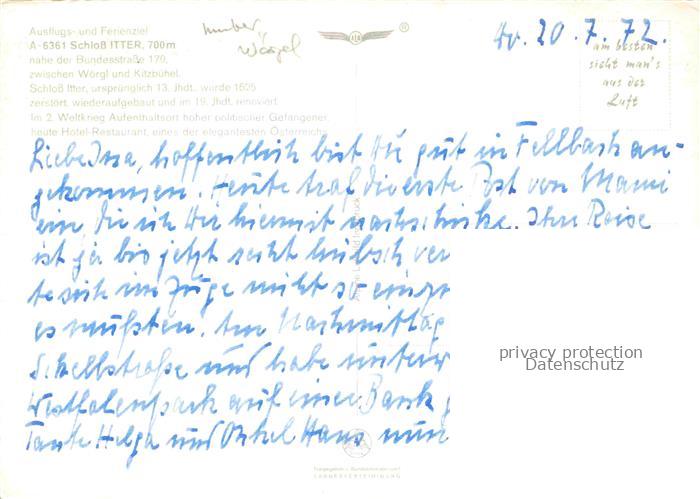 Ausflugs- und Ferienziel
A-6361 Schloß ITTER, 700m
nahe der Bundesstraße 170,
zwischen Wörgl und Kitzbühel.
Schloß Itter, ursprünglich 13. Jhdt. wurde 1525
zerstört, wiederaufgebaut und im 19. Jhdt. renoviert.
Im 2. Weltkrieg Aufenthaltsort hoher politischer Gefangener,
heute Hotel-Restaurant, eines der elegantesten Österreichs
Wörgl
20.7.72.
am besten
sieht man's
aus der
Luft
Liebe Insa, hoffentlich bist Du gut in Fellbach an-
gekommen. Heute traf die erste Post von Mami
ein, die ich Dir hiermit nachschicke. Ihre Reise
ist ja bis jetzt recht hübsch ver
te sich im Zuge nicht so
es mußten. Am Nachmittag
und habe unterw
Westfalenpark auf einer Bank
Tante Helga und Onkel Hans nun
privacy protection
Datenschutz